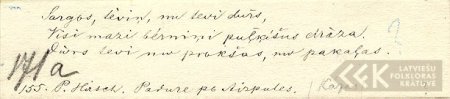 Sargos, tēvin, nu tevi durs,
Visi mazi bērniņi puļķišus drāza.
Durs tevi no prokšas, no pakaļas. ?
171a
155. P. Häsch. Padure pb Aizputes.
LATVIEŠU
FOLKLORAS
KRĀTUVE